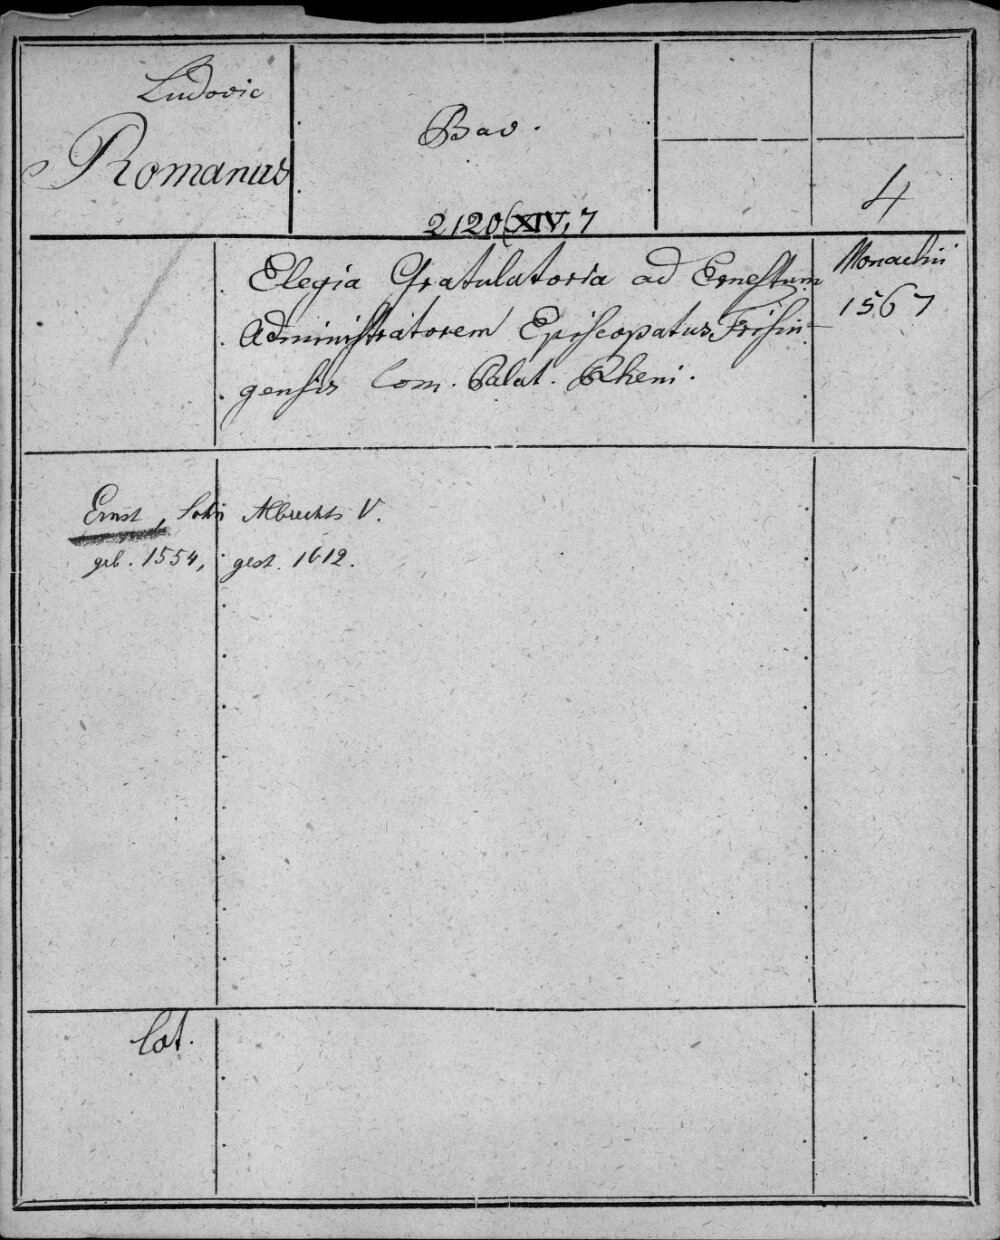 Ludovic
Romanus
Bav.
2120(XIV,7
4
Elegia Gratulatoria ad Ernestum
Administratorem Episcopatus Frisin-
gensis Com. Palat. Rheni.
Monachii
1567
Ernst, Sohn Albrechts V.
geb. 1554, gest. 1612.
lat.